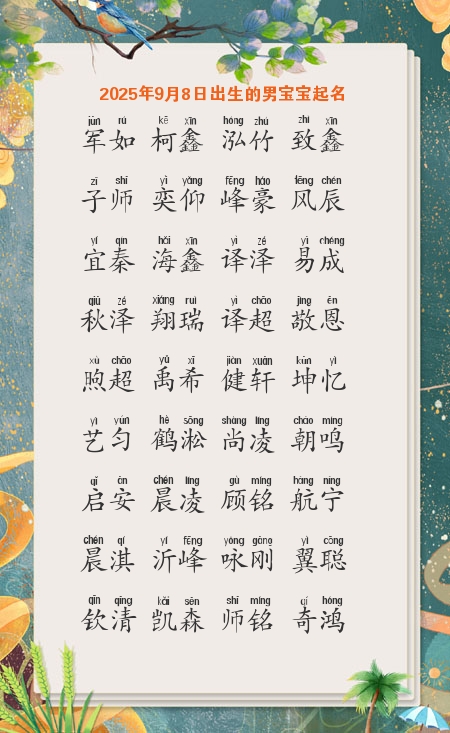 2025年9月8日出生的男宝宝起名
jūn rú kē xīn hóng zhú zhì xīn
军如 柯鑫 泓竹 致鑫
zǐ shī yì yǎng fēng háo fēng chén
子师 奕仰 峰豪 风辰
yí qín hǎi xīn yì zé yì chéng
宜秦 海鑫 译泽 易成
qiū zé xiáng ruì yì chāo jìng ēn
秋泽 翔瑞 译超 敬恩
xù chāo yǔ xī jiàn xuān kūn yì
煦超 禹希 健轩 坤忆
yì yún hè sōng shàng líng cháo míng
艺匀 鹤淞 尚凌 朝鸣
qǐ ān chén líng gù míng háng níng
启安 晨凌 顾铭 航宁
chén qí yí fēng yǒng gāng yì cōng
晨淇 沂峰 咏刚 翼聪
qīn qīng kǎi sēn shī míng qí hóng
钦清 凯森 师铭 奇鸿